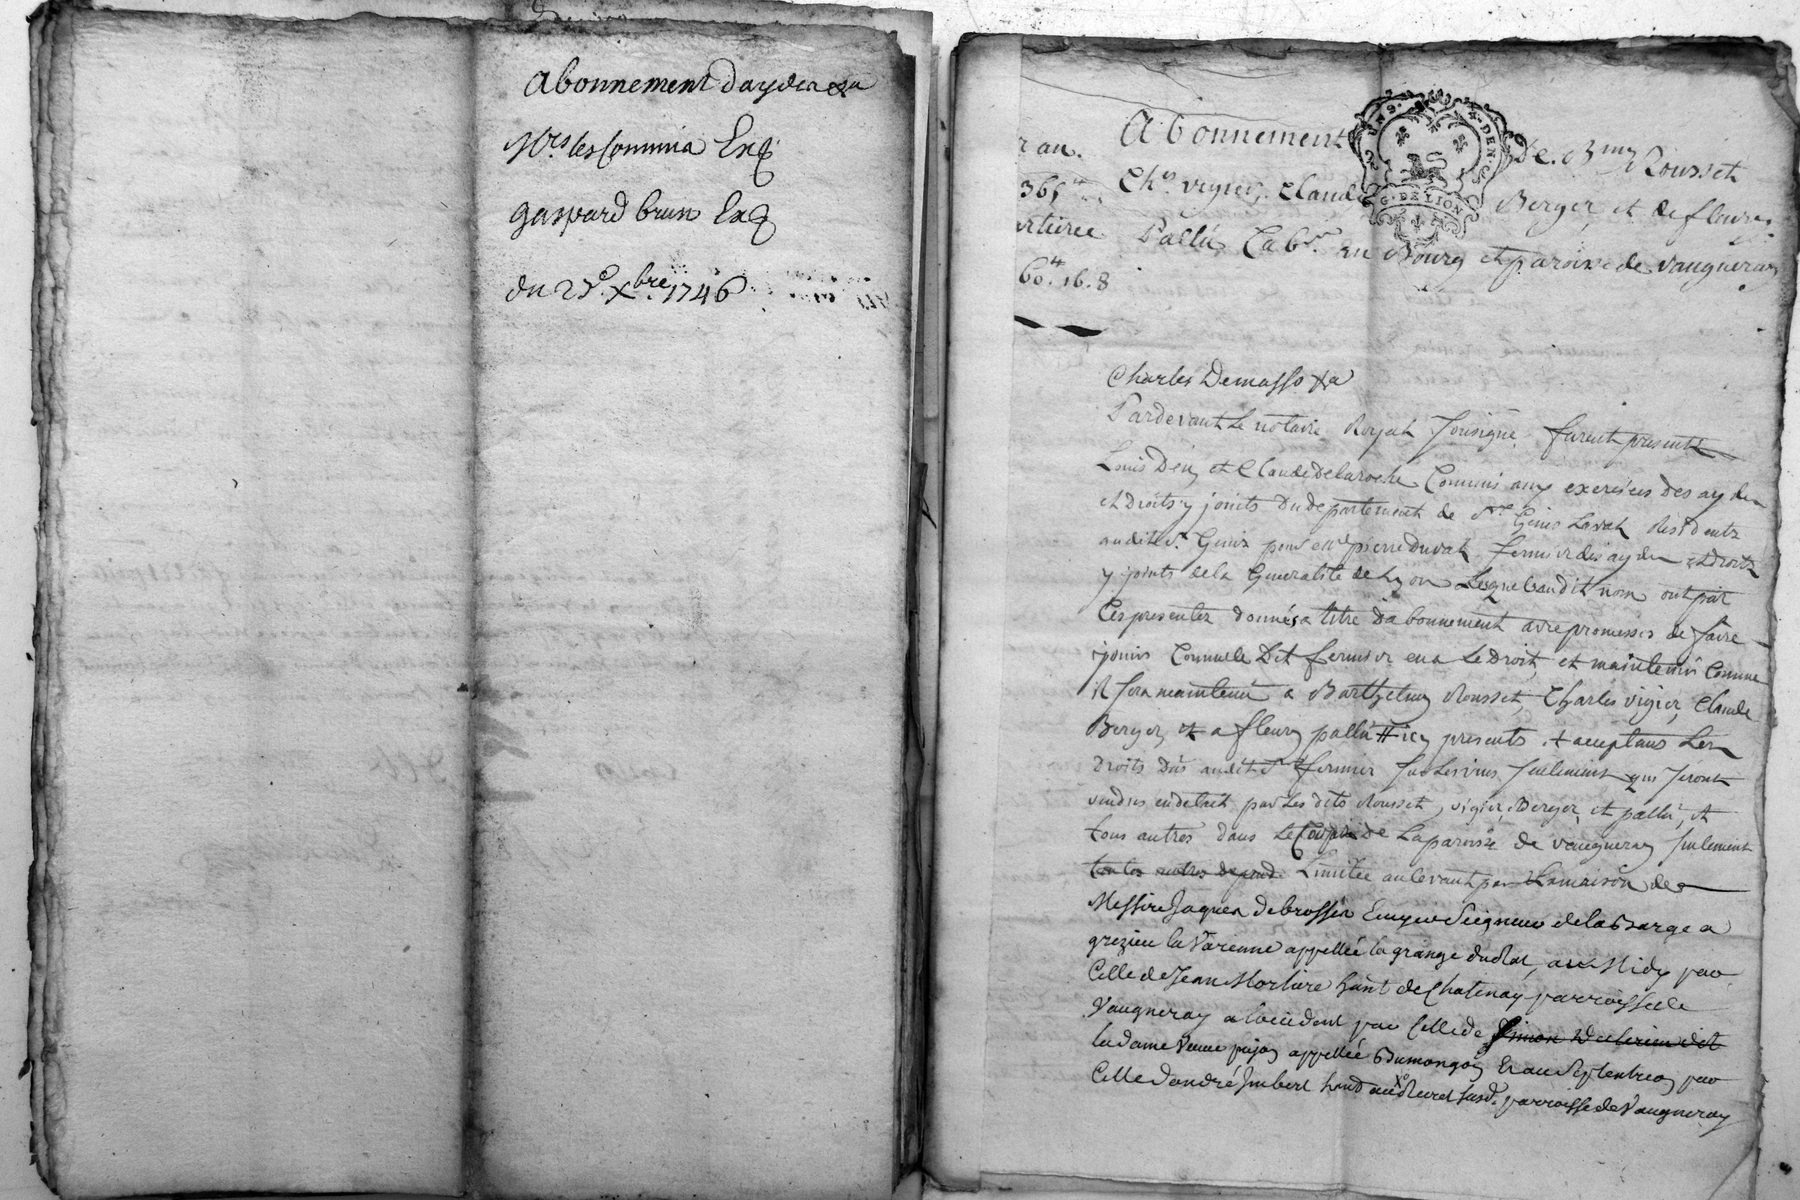 Abonnement daydes
Mrs les Commis
gaspard brun
du 23e xbre 1746
r an.
365
60. 16. 8
Abonnement de Bmy Rousset
Chs vigier, Claude Berger, et de fleury
Pallu Cabrs au Bourg et paroisse de vaugneray
G. DE LION
Charles Demasso
Pardevant Le notaire Royal sousigné furent presents
Louis Den et Claude Delaroche Commis aux exercices des aydes
et Droits y joints Du departement de St Genis Laval Residents
audit St Genis pour Me pierre Duval fermier des aydes et Droits
y joints de la Generalité de Lyon Lesquels audit nom ont par
Ces presentes donnés a titre dabonnement avec promesses de faire
jouir Comme le Dit fermier en a Le Droit, et maintenir Comme
il sera maintenu a Barthelmy Rousset, Charles vigier, Claude
Berger, et a fleury pallu icy presents et acceptans Les
Droits Dus audit Sr fermier sur Les vins seulement qui seront
vendus en detail par Les dits Rousset, vigier, Berger, et pallu, et
tous autres dans Le de La paroisse de vaugneray seulement
toutes autres Limitée au levant par La maison de
Messire Jaques de brosses Ecuyer Seigneur de la Barge a
grezieu la Varenne appellée la grange du , au Midy par
Celle de Jean Mortiere hant de Chatenay parroisse de
Vaugneray a loccident par Celle de
la dame Veuve appellée Et au Septentrion par
Celle dandré Imbert hand au parroisse de Vaugneray